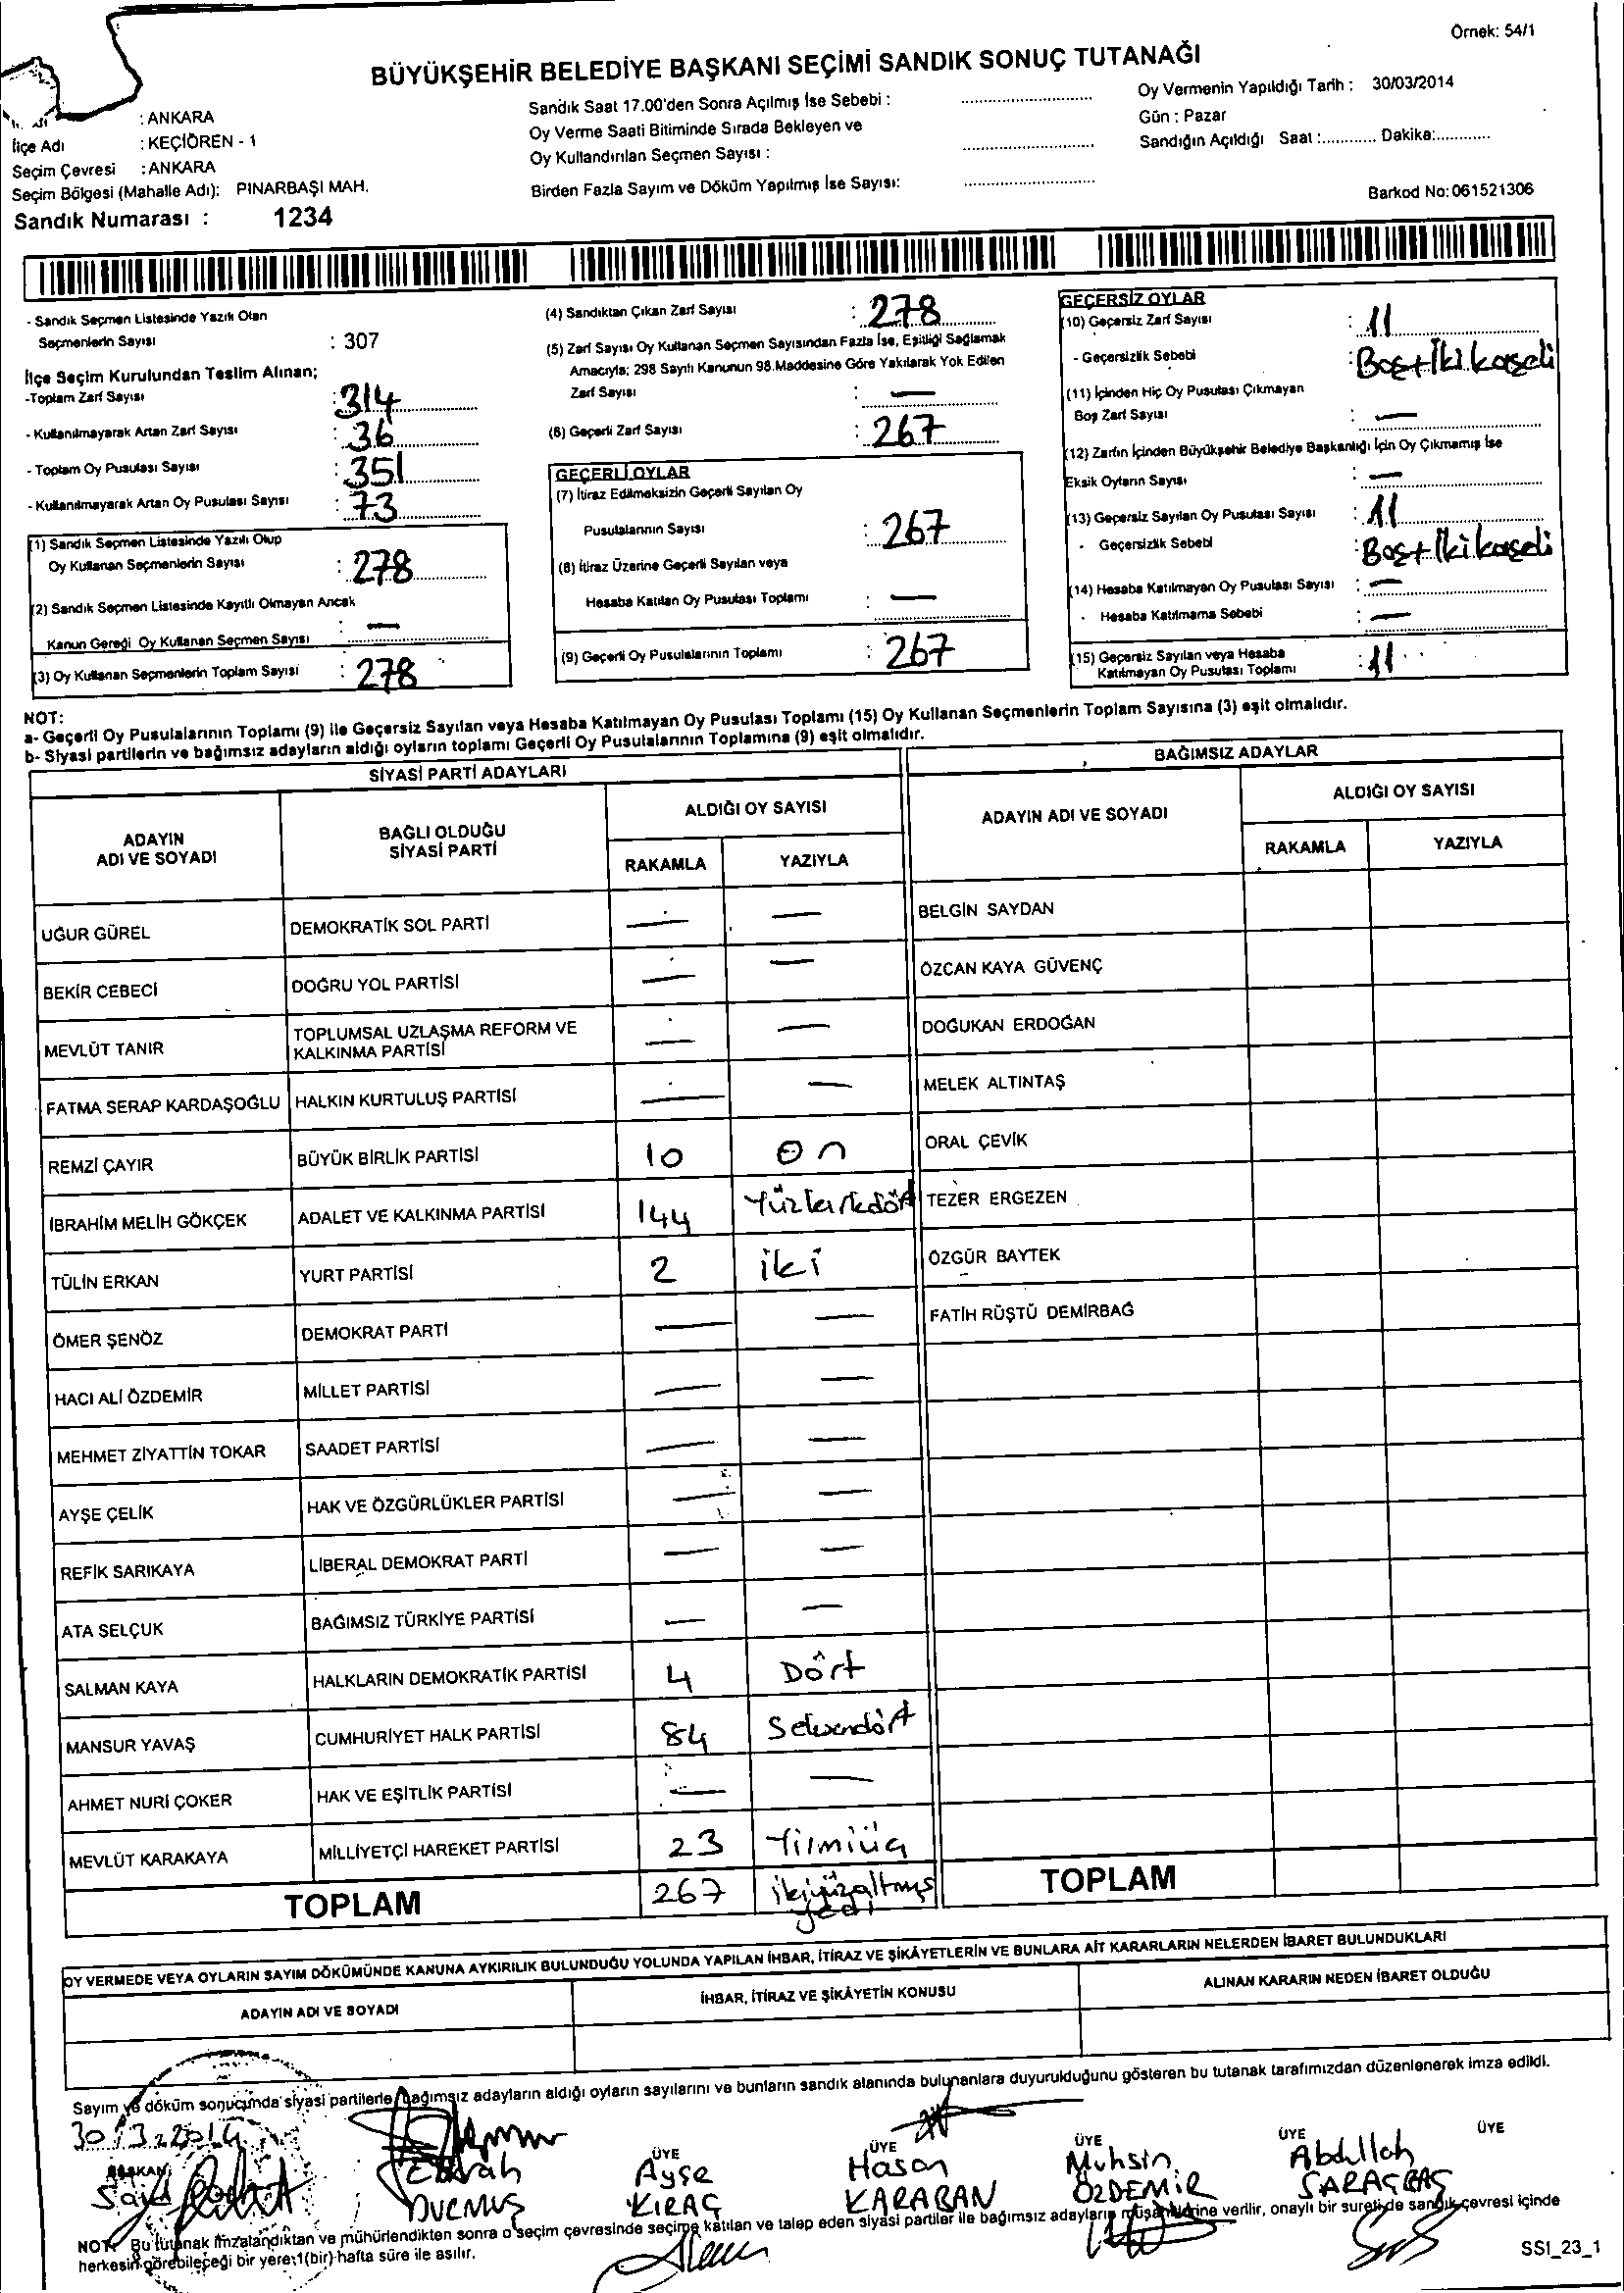 Örnek: 54/1
BÜYÜKŞEHİR BELEDİYE BAŞKANI SEÇİMİ SANDIK SONUÇ TUTANAĞI
: ANKARA
İlçe Adı : KEÇİÖREN - 1
Seçim Çevresi : ANKARA
Seçim Bölgesi (Mahalle Adı): PINARBAŞI MAH.
Sandık Numarası : 1234
Sandık Saat 17.00'den Sonra Açılmış İse Sebebi :
Oy Verme Saati Bitiminde Sırada Bekleyen ve
Oy Kullandırılan Seçmen Sayısı :
Birden Fazla Sayım ve Döküm Yapılmış İse Sayısı:
Oy Vermenin Yapıldığı Tarih : 30/03/2014
Gün : Pazar
Sandığın Açıldığı Saat :............ Dakika:............
Barkod No: 061521306
- Sandık Seçmen Listesinde Yazılı Olan
Seçmenlerin Sayısı : 307
İlçe Seçim Kurulundan Teslim Alınan;
-Toplam Zarf Sayısı : 314
- Kullanılmayarak Artan Zarf Sayısı : 36
- Toplam Oy Pusulası Sayısı : 351
- Kullanılmayarak Artan Oy Pusulası Sayısı : 73
(1) Sandık Seçmen Listesinde Yazılı Olup
Oy Kullanan Seçmenlerin Sayısı : 278
(2) Sandık Seçmen Listesinde Kayıtlı Olmayan Ancak
Kanun Gereği Oy Kullanan Seçmen Sayısı : —
(3) Oy Kullanan Seçmenlerin Toplam Sayısı : 278
(4) Sandıktan Çıkan Zarf Sayısı : 278
(5) Zarf Sayısı Oy Kullanan Seçmen Sayısından Fazla İse, Eşitliği Sağlamak
Amacıyla; 298 Sayılı Kanunun 98.Maddesine Göre Yakılarak Yok Edilen
Zarf Sayısı : —
(6) Geçerli Zarf Sayısı : 267
GEÇERLİ OYLAR
(7) İtiraz Edilmeksizin Geçerli Sayılan Oy
Pusulalarının Sayısı : 267
(8) İtiraz Üzerine Geçerli Sayılan veya
Hesaba Katılan Oy Pusulası Toplamı : —
(9) Geçerli Oy Pusulalarının Toplamı : 267
GEÇERSİZ OYLAR
(10) Geçersiz Zarf Sayısı : 11
- Geçersizlik Sebebi : Boş+İki kaşeli
(11) İçinden Hiç Oy Pusulası Çıkmayan
Boş Zarf Sayısı : —
(12) Zarfın İçinden Büyükşehir Belediye Başkanlığı İçin Oy Çıkmamış İse
Eksik Oyların Sayısı : —
(13) Geçersiz Sayılan Oy Pusulası Sayısı : 11
- Geçersizlik Sebebi : Boş+İki kaşeli
(14) Hesaba Katılmayan Oy Pusulası Sayısı : —
- Hesaba Katılmama Sebebi : —
(15) Geçersiz Sayılan veya Hesaba
Katılmayan Oy Pusulası Toplamı : 11
NOT:
a- Geçerli Oy Pusulalarının Toplamı (9) ile Geçersiz Sayılan veya Hesaba Katılmayan Oy Pusulası Toplamı (15) Oy Kullanan Seçmenlerin Toplam Sayısına (3) eşit olmalıdır.
b- Siyasi partilerin ve bağımsız adayların aldığı oyların toplamı Geçerli Oy Pusulalarının Toplamına (9) eşit olmalıdır.
SİYASİ PARTİ ADAYLARI
ADAYIN ADI VE SOYADI
BAĞLI OLDUĞU SİYASİ PARTİ
ALDIĞI OY SAYISI
RAKAMLA YAZIYLA
UĞUR GÜREL DEMOKRATİK SOL PARTİ — —
BEKİR CEBECİ DOĞRU YOL PARTİSİ — —
MEVLÜT TANIR TOPLUMSAL UZLAŞMA REFORM VE KALKINMA PARTİSİ — —
FATMA SERAP KARDAŞOĞLU HALKIN KURTULUŞ PARTİSİ — —
REMZİ ÇAYIR BÜYÜK BİRLİK PARTİSİ 10 On
İBRAHİM MELİH GÖKÇEK ADALET VE KALKINMA PARTİSİ 144 Yüzkırkdört
TÜLİN ERKAN YURT PARTİSİ 2 iki
ÖMER ŞENÖZ DEMOKRAT PARTİ — —
HACI ALİ ÖZDEMİR MİLLET PARTİSİ — —
MEHMET ZİYATTİN TOKAR SAADET PARTİSİ — —
AYŞE ÇELİK HAK VE ÖZGÜRLÜKLER PARTİSİ — —
REFİK SARIKAYA LİBERAL DEMOKRAT PARTİ — —
ATA SELÇUK BAĞIMSIZ TÜRKİYE PARTİSİ — —
SALMAN KAYA HALKLARIN DEMOKRATİK PARTİSİ 4 Dört
MANSUR YAVAŞ CUMHURİYET HALK PARTİSİ 84 Seksendört
AHMET NURİ ÇOKER HAK VE EŞİTLİK PARTİSİ — —
MEVLÜT KARAKAYA MİLLİYETÇİ HAREKET PARTİSİ 23 Yirmiüç
TOPLAM 267 ikiyüzaltmış yedi
BAĞIMSIZ ADAYLAR
ADAYIN ADI VE SOYADI
ALDIĞI OY SAYISI
RAKAMLA YAZIYLA
BELGİN SAYDAN
ÖZCAN KAYA GÜVENÇ
DOĞUKAN ERDOĞAN
MELEK ALTINTAŞ
ORAL ÇEVİK
TEZER ERGEZEN
ÖZGÜR BAYTEK
FATİH RÜŞTÜ DEMİRBAĞ
TOPLAM
OY VERMEDE VEYA OYLARIN SAYIM DÖKÜMÜNDE KANUNA AYKIRILIK BULUNDUĞU YOLUNDA YAPILAN İHBAR, İTİRAZ VE ŞİKÂYETLERİN VE BUNLARA AİT KARARLARIN NELERDEN İBARET BULUNDUKLARI
ADAYIN ADI VE SOYADI
İHBAR, İTİRAZ VE ŞİKÂYETİN KONUSU
ALINAN KARARIN NEDEN İBARET OLDUĞU
Sayım ve döküm sonucunda siyasi partilerle bağımsız adayların aldığı oyların sayılarını ve bunların sandık alanında bulunanlara duyurulduğunu gösteren bu tutanak tarafımızdan düzenlenerek imza edildi.
30/3.2014
BAŞKAN ÜYE ÜYE ÜYE ÜYE ÜYE
Ayşe KIRAÇ
Hasan KARABAN
Muhsin ÖZDEMİR
Abdullah SARAÇBAŞ
DURMUŞ
NOT: Bu tutanak imzalandıktan ve mühürlendikten sonra o seçim çevresinde seçime katılan ve talep eden siyasi partiler ile bağımsız adayların müşahitlerine verilir, onaylı bir sureti de sandık çevresi içinde
herkesin görebileceği bir yere 1(bir) hafta süre ile asılır.
SSI_23_1